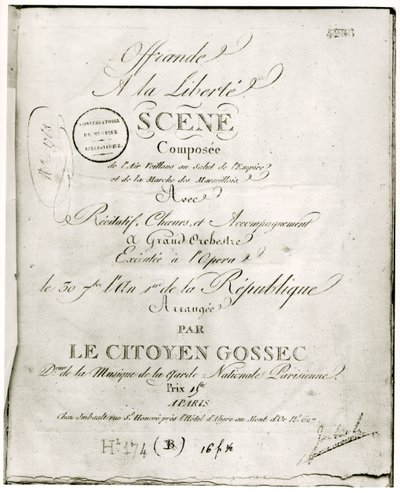 4278
Offrande
A la Liberté
SCENE
Composée
de l'Air Veillons au Salut de l'Empire
et de la Marche des Marseillois
Avec
Récitatif, Chœurs, et Accompagnement
A Grand Orchestre
Exécutée à l'Opera
le 30 7bre l'An 1er de la République
Arrangée
PAR
LE CITOYEN GOSSEC
de la Musique de la Garde Nationale Parisienne
Prix
A PARIS
Chez Imbault rue St Honoré près l'Hôtel d'Aligre au Mont d'Or No 627
CONSERVATOIRE
DE MUSIQUE
BIBLIOTHÈQUE
H2 174 (B)